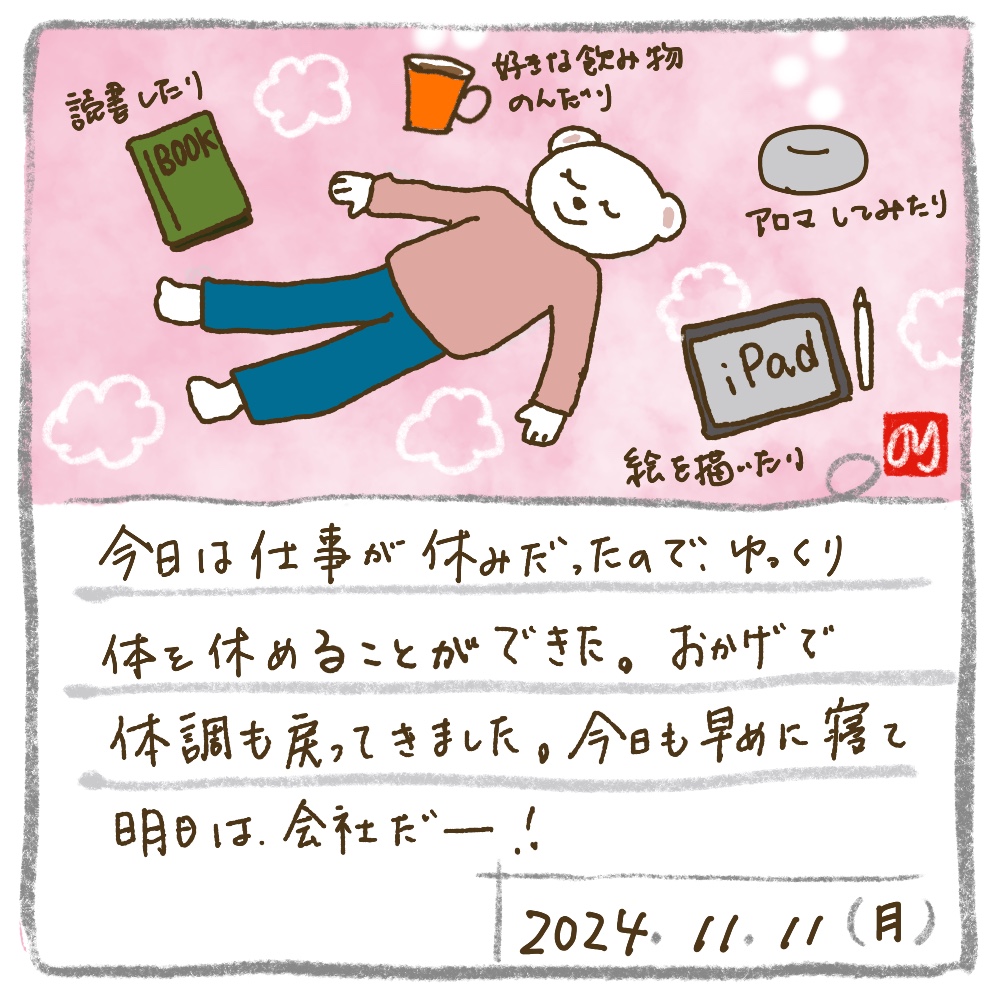 読書したり
BOOK
好きな飲み物
のんだり
アロマ してみたり
iPad
絵を描いたり
のり
今日は仕事が休みだったので、ゆっくり
体を休めることができた。おかげで
体調も戻ってきました。今日も早めに寝て
明日は、会社だー!
2024.11.11(月)